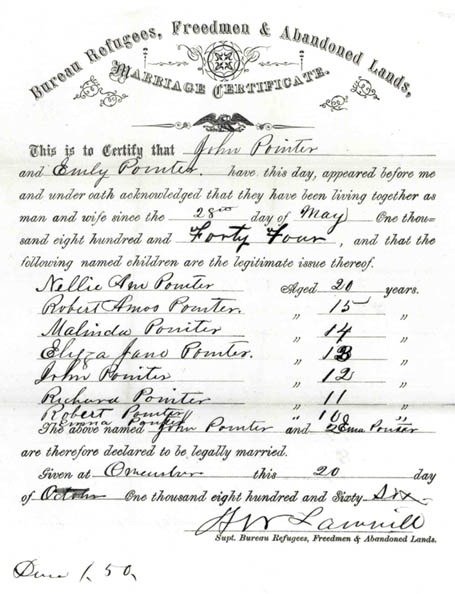 Bureau Refugees, Freedmen & Abandoned Lands,
Marriage Certificate.
This is to Certify that John Pointer
and Emily Pointer. have this day, appeared before me
and under oath acknowledged that they have been living together as
man and wife since the 28th day of May One thou-
sand eight hundred and Forty Four, and that the
following named children are the legitimate issue thereof.
Nellie Ann Pointer Aged 20 years.
Robert Amos Pointer. „ 15 „
Malinda Pointer „ 14 „
Eliza Jane Pointer. „ 13 „
John Pointer „ 12 „
Richard Pointer „ 11 „
Robert Pointer „ 10 „
Emma Pointer 8
The above named John Pointer and Pointer
are therefore declared to be legally married.
Given at Owensboro this 20 day
of One thousand eight hundred and Sixty Six
Supt. Bureau Refugees, Freedmen & Abandoned Lands.
Due 1.50,